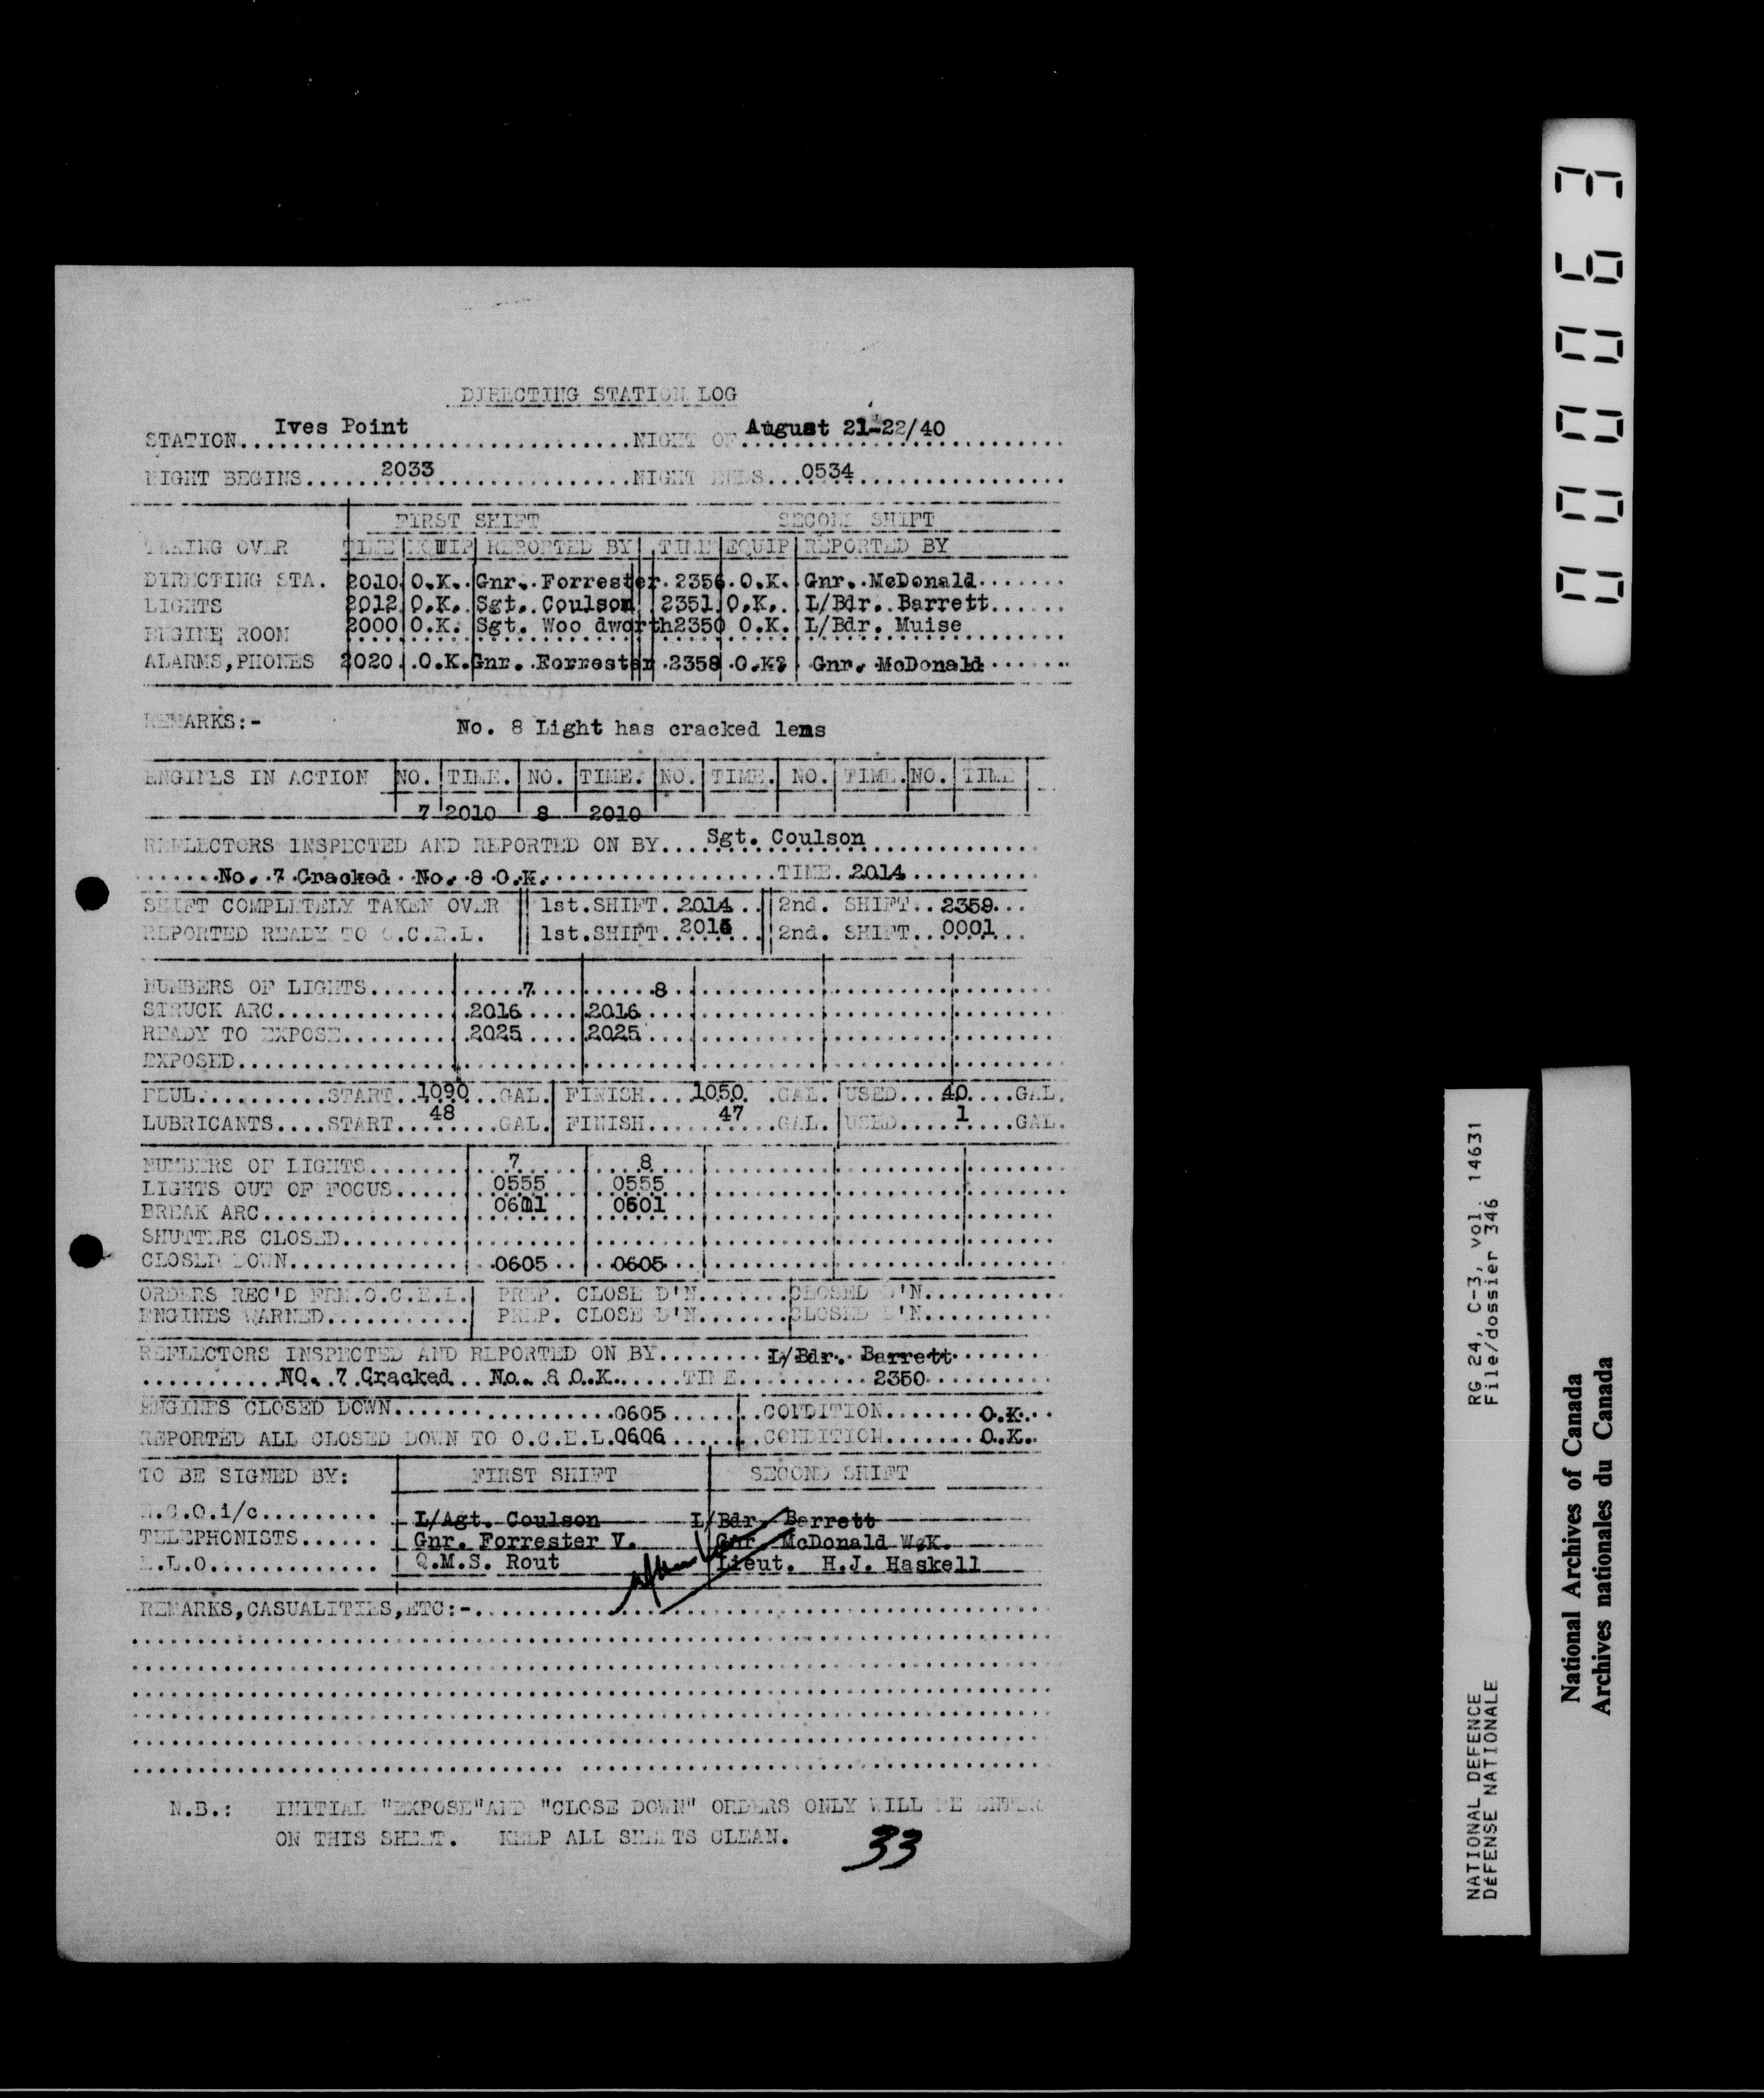 DIRECTING STATION LOG
STATION....Ives Point....NIGHT OF....August 21-22/40....
NIGHT BEGINS....2033....NIGHT ENDS...0534....
FIRST SHIFT SECOND SHIFT
TAKING OVER TIME EQUIP REPORTED BY TIME EQUIP REPORTED BY
DIRECTING STA. 2010 O.K. Gnr. Forrester 2356 O.K. Gnr. McDonald
LIGHTS 2012 O.K. Sgt. Coulson 2351 O.K. L/Bdr. Barrett
ENGINE ROOM 2000 O.K. Sgt. Woo dworth 2350 O.K. L/Bdr. Muise
ALARMS,PHONES 2020 O.K. Gnr. Forrester 2358 O.K? Gnr. McDonald
REMARKS:- No. 8 Light has cracked lens
ENGINES IN ACTION NO. TIME. NO. TIME. NO. TIME. NO. TIME. NO. TIME
7 2010 8 2010
REFLECTORS INSPECTED AND REPORTED ON BY....Sgt. Coulson....
No. 7 Cracked No. 8 O.K. TIME. 2014
SHIFT COMPLETELY TAKEN OVER 1st.SHIFT. 2014 2nd. SHIFT.. 2359
REPORTED READY TO O.C.E.L. 1st.SHIFT. 2nd. SHIFT... 0001
NUMBERS OF LIGHTS.... 7 8
STRUCK ARC.... 2016 2016
READY TO EXPOSE.... 2025 2025
EXPOSED....
FEUL....START..1090...GAL. FINISH....1050..GAL. USED...40....GAL.
LUBRICANTS....START..48..GAL. FINISH....47...GAL. USED....1....GAL.
NUMBERS OF LIGHTS.... 7 8
LIGHTS OUT OF FOCUS.... 0555 0555
BREAK ARC.... 0601
SHUTTERS CLOSED....
CLOSED DOWN.... 0605 0605
ORDERS REC'D FRM.O.C.E.L. PREP. CLOSE D'N.......CLOSED D'N...........
ENGINES WARNED........... PREP. CLOSE D'N.......CLOSED D'N..........
REFLECTORS INSPECTED AND REPORTED ON BY........L/Bdr. Barrett
NO. 7 Cracked No. 8 O.K. TIME.... 2350
ENGINES CLOSED DOWN.... 0605 CONDITION.... O.K.
REPORTED ALL CLOSED DOWN TO O.C.E.L. 0606 CONDITION.... O.K.
TO BE SIGNED BY: FIRST SHIFT SECOND SHIFT
N.C.O.i/c......... L/Agt. Coulson L/Bdr. Barrett
TELEPHONISTS...... Gnr. Forrester V. Gnr. McDonald W.K.
E.L.O............. Q.M.S. Rout Lieut. H.J. Haskell
REMARKS,CASUALITIES,ETC:-
N.B.: INITIAL "EXPOSE"AND "CLOSE DOWN" ORDERS ONLY WILL BE ENTER
ON THIS SHEET. KEEP ALL SHEETS CLEAN.
33
000063
RG 24, C-3, vol. 14631
File/dossier 346
NATIONAL DEFENCE
DÉFENSE NATIONALE
National Archives of Canada
Archives nationales du Canada